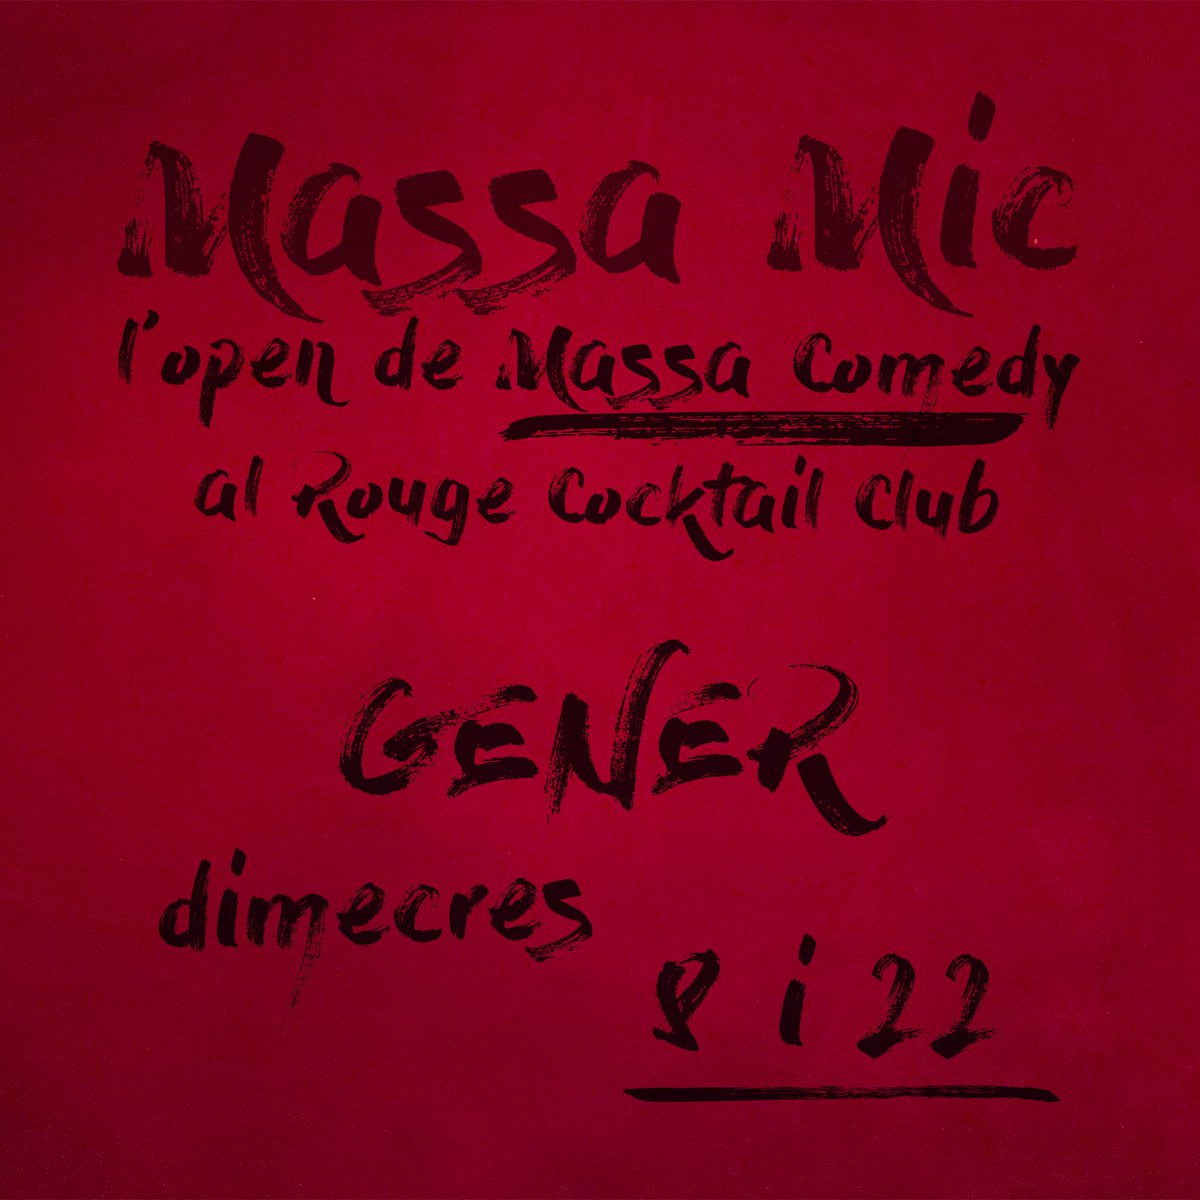 Massa Mic
l'open de Massa Comedy
al Rouge Cocktail Club
GENER
dimecres
8 i 22